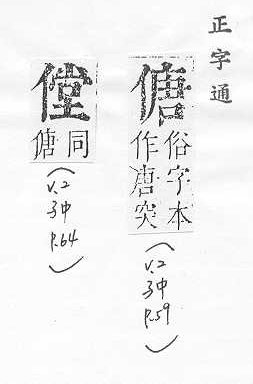 正字通
傏
俗字本
作唐突
(V.2
子中
P.59)
㑽
同
傏
(V.2
子中
P.64)